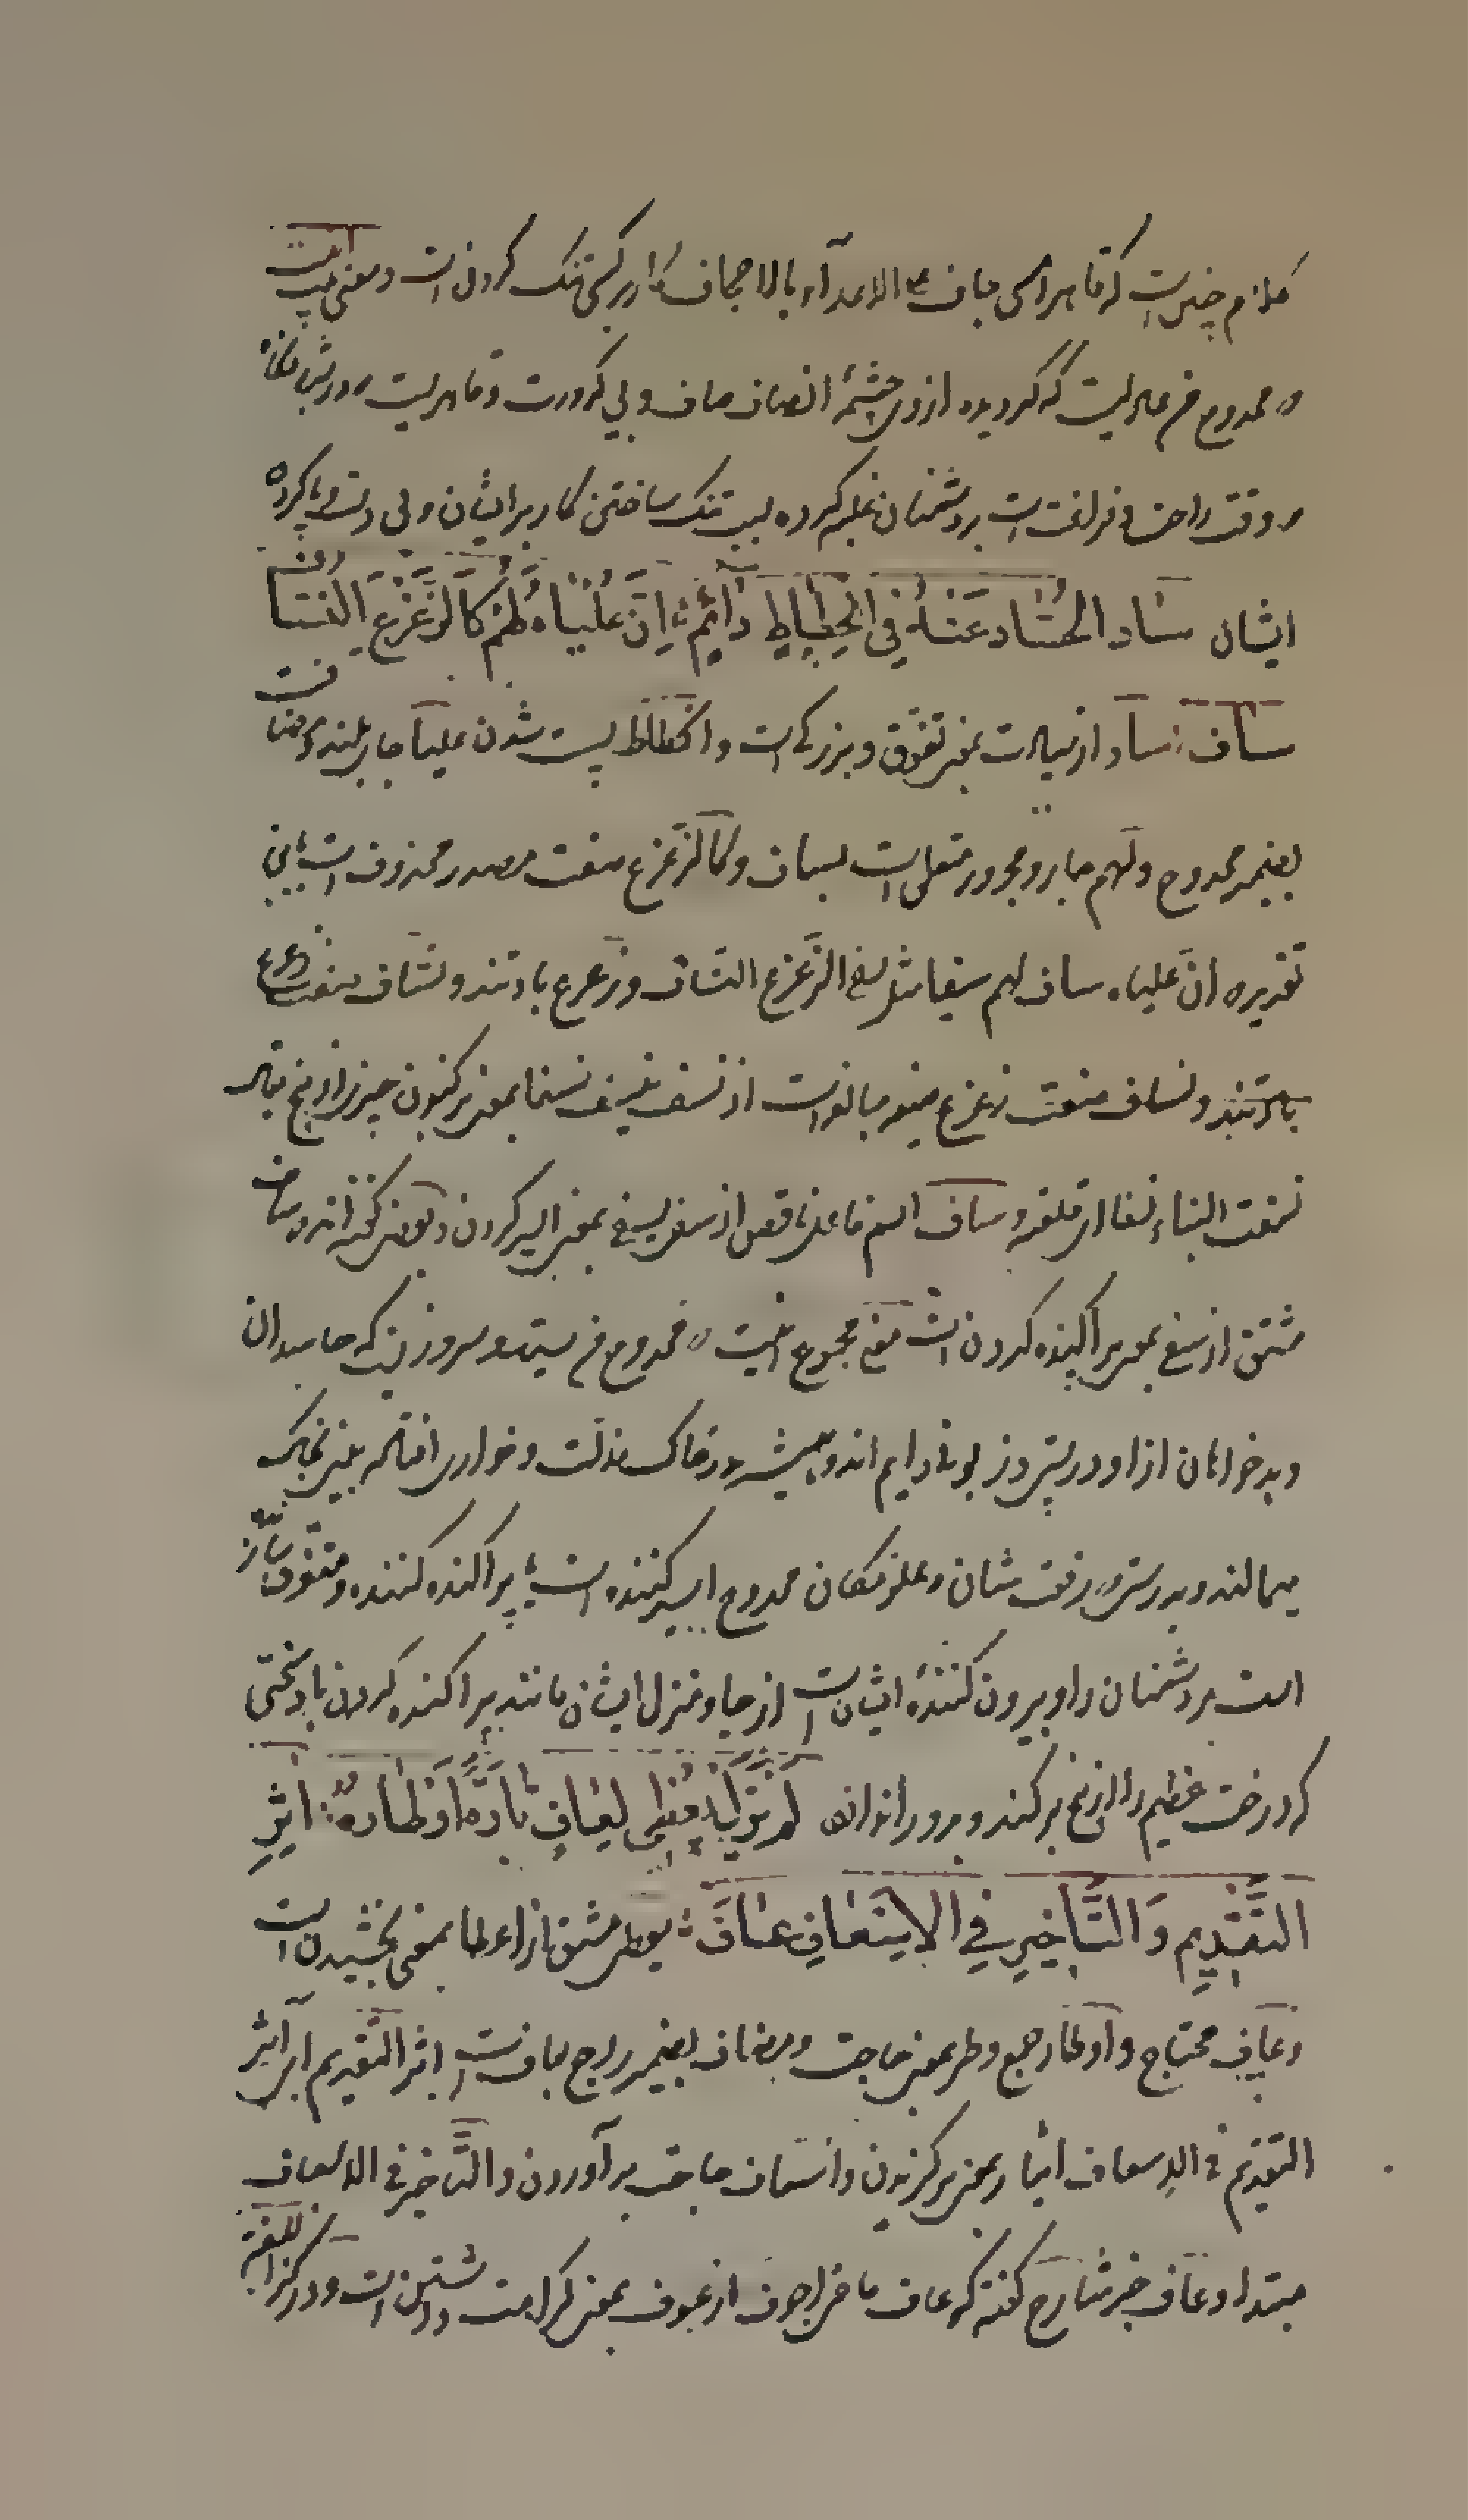 کلام چنین است که قاهر ای جاف علی الاعدآء بالاجحاف کار بر کسی تنک کردن است و معنی بیت
ممدوح من عادلیست که کردیده از وی چشمهٔ انصاف صاف و بی کدورت و قاهریست
وقت راحت و فراغت است بر دشمنان غلبه کرده بسبب تنک ساختن کار بر ایشان و بی
ایشان ساد الحساد عنه في انحطاط دائم ان علياه لهم كالزعزع النساف
ساف ساد از سیادت بمعنی تفوق و بزرکی است و انحطاط پست شدن علیا جای بلند و مضافست
بضمیر ممدوح و لهم جار و مجرور متعلق است بساف و کالزعزع صفت مصدر محذوف است یعنی
تقدیره ان علیاه ساف لهم سفیا مثل سفی الزعزع النساف و زعزع باد تند و نساف صفت
باد تند و نساف صفت زعزع صیغه مبالغه است از نسف ینسف نسفا بمعنی برکندن چیزی از بیخ یقال
نسفت البناء نسفا ای قلعته و ساف اسم فاعل ناقص از سفی یسفی بمعنی اسیر کردن و بعضی کفته اند و ساف
مشتق از سفی بمعنی پراکنده کردن است معنی مجموع اینست ممدوح من سید و سروریست که حاسدان
و بدخواهان از او در پستی روز بروز دایم اند و همیشه در خاک مذلت و خواری افتاده بینی بخاک
میمالند و بدرستی رفعت شان و علو مکان ممدوح اسیر کننده است یا پراکنده کننده و متفرق سازنده
است بر دشمنان را و بیرون کنندهٔ ایشان است از جا و منزل ایشان مانند پراکنده کردن باد سختی
که درخت عظیم را از بیخ برکند و بدور اندازد لم يزل يعطي لعاف بادة اوطاره اثر
التقديم والتأخير في الاسعاف عاف يعطی مشتق از اعطا بمعنی بخشیدن است
و عاف محتاج و اوطار جمع وطر بمعنی حاجت و مضاف بضمیر راجع بعاف است اثر التقدیم ای اثر
التقدیم فی الاسعاف ایثار بمعنی برکزیدن و اسعاف حاجت برآوردن و التأخیر فی الاسعاف
مبتدا و عاف خبر شارح کفته که عاف ماضی اجوف از عیوف بمعنی کراهت داشتن است و در کنز اللغة